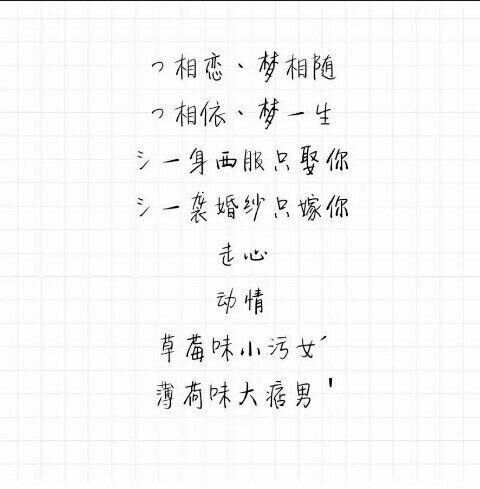 っ相恋、梦相随
っ相依、梦一生
ミ一身西服只娶你
ミ一袭婚纱只嫁你
走心
动情
草莓味小污女ˊ
薄荷味大痞男╹